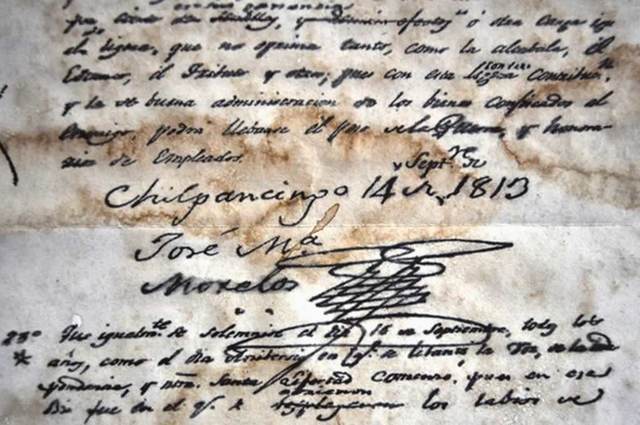 ó otra carga igⁿ
de ligera, que no oprima tanto, como la alcabala, el
Estanco, el Tributo y otros; pues con esta ligera Contribuⁿ.
y la buena administracion de los bienes confiscados al
Enemigo, podra llebarse el peso de la Guerra, y honora-
rios de Empleados.
Chilpancingo 14 de Septᵉ. de 1813
José Mᵃ
Morelos
23º Que igualmᵗᵉ. se solemnize el dia 16 de Septiembre, todos los
años, como el dia Anibersario en qᵉ. se
pendencia, y ntra. Santa Libertad Comensó, pues en ese
Dia fue en el qᵉ. se los labios de